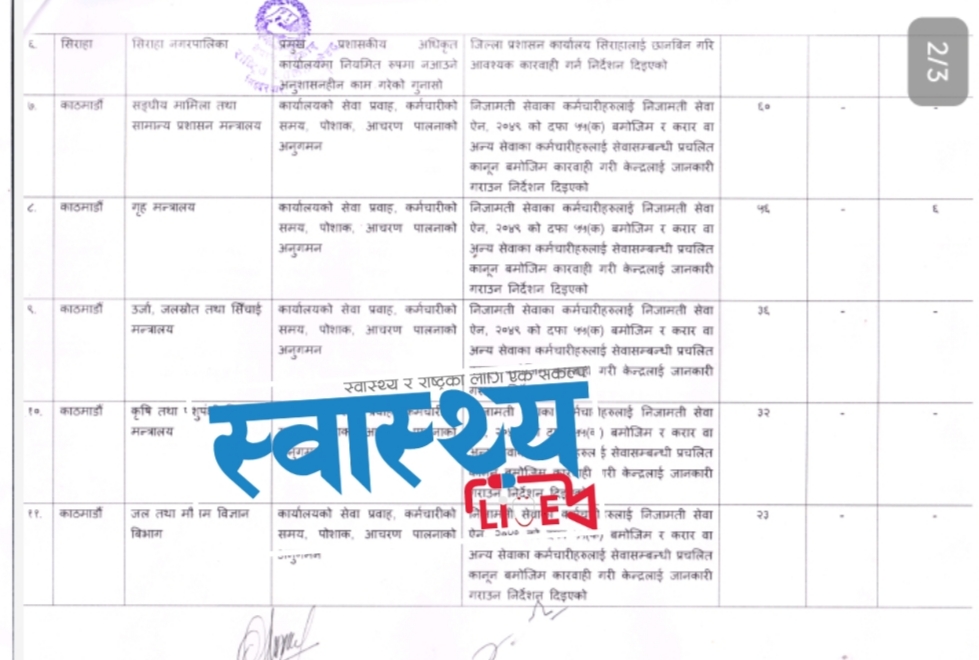 2/3
६. सिराहा सिराहा नगरपालिका प्रमुख प्रशासकीय अधिकृत जिल्ला प्रशासन कार्यालय सिराहालाई छानबिन गरि
कार्यालयमा नियमित रुपमा नआउने आवश्यक कारवाही गर्न निर्देशन दिइएको
अनुशासनहीन काम गरेको गुनासो
७. काठमाडौं सङ्घीय मामिला तथा कार्यालयको सेवा प्रवाह, कर्मचारीको निजामती सेवाका कर्मचारीहरुलाई निजामती सेवा ६० - -
सामान्य प्रशासन मन्त्रालय समय, पोशाक, आचरण पालनाको ऐन, २०४९ को दफा ५५(क) बमोजिम र करार वा
अनुगमन अन्य सेवाका कर्मचारीहरुलाई सेवासम्बन्धी प्रचलित
कानून बमोजिम कारवाही गरी केन्द्रलाई जानकारी
गराउन निर्देशन दिइएको
८. काठमाडौं गृह मन्त्रालय कार्यालयको सेवा प्रवाह, कर्मचारीको निजामती सेवाका कर्मचारीहरुलाई निजामती सेवा ५६ - ६
समय, पोशाक, आचरण पालनाको ऐन, २०४९ को दफा ५५(क) बमोजिम र करार वा
अनुगमन अन्य सेवाका कर्मचारीहरुलाई सेवासम्बन्धी प्रचलित
कानून बमोजिम कारवाही गरी केन्द्रलाई जानकारी
गराउन निर्देशन दिइएको
९. काठमाडौं उर्जा, जलस्रोत तथा सिँचाई कार्यालयको सेवा प्रवाह, कर्मचारीको निजामती सेवाका कर्मचारीहरुलाई निजामती सेवा ३६ - -
मन्त्रालय समय, पोशाक, आचरण पालनाको ऐन, २०४९ को दफा ५५(क) बमोजिम र करार वा
अनुगमन अन्य सेवाका कर्मचारीहरुलाई सेवासम्बन्धी प्रचलित
गरी केन्द्रलाई जानकारी
स्वास्थ्य र राष्ट्रका लागि एक सकल्प
स्वास्थ्य
LIVE
१०. काठमाडौं कृषि तथा निजामती सेवा ३२ - -
मन्त्रालय बमोजिम र करार वा
सेवासम्बन्धी प्रचलित
केन्द्रलाई जानकारी
गराउन निर्देशन
११. काठमाडौं जल तथा विज्ञान कार्यालयको सेवा प्रवाह, कर्मचारीको निजामती सेवा २३ - -
विभाग समय, पोशाक, आचरण पालनाको ऐन, बमोजिम र करार वा
अन्य सेवाका कर्मचारीहरुलाई सेवासम्बन्धी प्रचलित
कानून बमोजिम कारवाही गरी केन्द्रलाई जानकारी
गराउन निर्देशन दिइएको